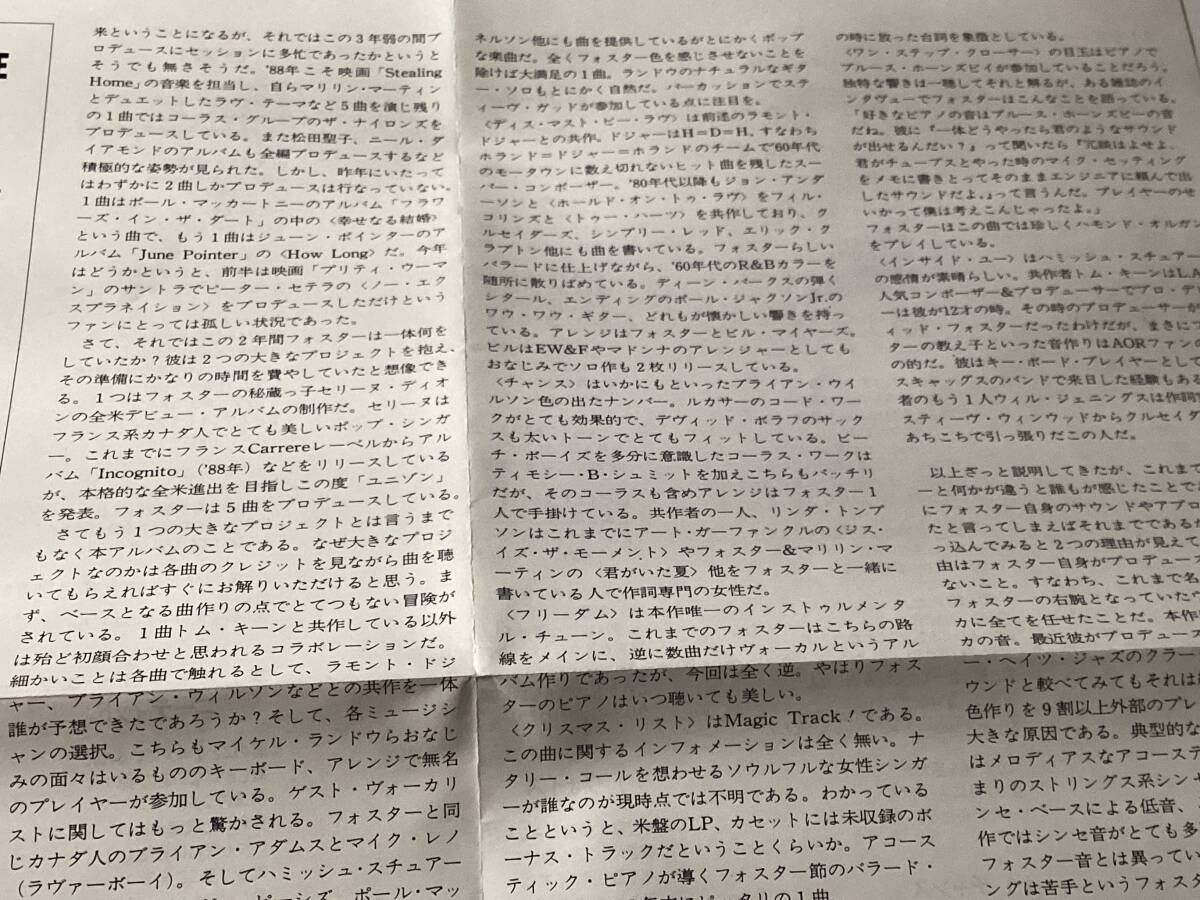 来ということになるが、それではこの3年弱の間プ
ロデュースにセッションに多忙であったかというと
そうでも無さそうだ。'88年こそ映画「Stealing
Home」の音楽を担当し、自らマリリン・マーティン
とデュエットしたラヴ・テーマなど5曲を演じ残り
の1曲ではコーラス・グループのザ・ナイロンズを
プロデュースしている。また松田聖子、ニール・ダ
イアモンドのアルバムも全編プロデュースするなど
積極的な姿勢が見られた。しかし、昨年にいたって
はわずかに2曲しかプロデュースは行なっていない。
1曲はポール・マッカートニーのアルバム「フラワ
ーズ・イン・ザ・ダート」の中の〈幸せなる結婚〉
という曲で、もう1曲はジューン・ポインターのア
ルバム「June Pointer」の〈How Long〉だ。今年
はどうかというと、前半は映画「プリティ・ウーマ
ン」のサントラでピーター・セテラの〈ノー・エク
スプラネイション〉をプロデュースしただけという
ファンにとっては孤しい状況であった。
さて、それではこの2年間フォスターは一体何を
していたか？彼は2つの大きなプロジェクトを抱え、
その準備にかなりの時間を費やしていたと想像でき
る。1つはフォスターの秘蔵っ子セリーヌ・ディオ
ンの全米デビュー・アルバムの制作だ。セリーヌは
フランス系カナダ人でとても美しいポップ・シンガ
ー。これまでにフランスCarrereレーベルからアル
バム「Incognito」('88年）などをリリースしている
が、本格的な全米進出を目指しこの度「ユニゾン」
を発表。フォスターは5曲をプロデュースしている。
さてもう1つの大きなプロジェクトとは言うまで
もなく本アルバムのことである。なぜ大きなプロジ
ェクトなのかは各曲のクレジットを見ながら曲を聴
いてもらえればすぐにお解りいただけると思う。ま
ず、ベースとなる曲作りの点でとてつもない冒険が
されている。1曲トム・キーンと共作している以外
は殆ど初顔合わせと思われるコラボレーションだ。
細かいことは各曲で触れるとして、ラモント・ドジ
ャー、ブライアン・ウィルソンなどとの共作を一体
誰が予想できたであろうか？そして、各ミュージシ
ャンの選択。こちらもマイケル・ランドウらおなじ
みの面々はいるもののキーボード、アレンジで無名
のプレイヤーが参加している。ゲスト・ヴォーカリ
ストに関してはもっと驚かされる。フォスターと同
じカナダ人のブライアン・アダムスとマイク・レノ
（ラヴァーボーイ）。そしてハミッシュ・スチュアー
ピーシズ、ポール・マッ
ネルソン他にも曲を提供しているがとにかくポップ
な楽曲だ。全くフォスター色を感じさせないことを
除けば大満足の1曲。ランドウのナチュラルなギタ
ー・ソロもとにかく自然だ。パーカッションでステ
ィーヴ・ガッドが参加している点に注目を。
〈ディス・マスト・ビー・ラヴ〉は前述のラモント・
ドジャーとの共作。ドジャーはH=D=H、すなわち
ホランド=ドジャー=ホランドのチームで'60年代
のモータウンに数え切れないヒット曲を残したスー
パー・コンポーザー。'80年代以降もジョン・アンダ
ーソンと〈ホールド・オン・トゥ・ラヴ〉をフィル・
コリンズと〈トゥー・ハーツ〉を共作しており、ク
ルセイダーズ、シンプリー・レッド、エリック・ク
ラプトン他にも曲を書いている。フォスターらしい
バラードに仕上げながら、'60年代のR&Bカラーを
随所に散りばめている。ディーン・パークスの弾く
シタール、エンディングのポール・ジャクソンJr.の
ワウ・ワウ・ギター、どれもが懐かしい響きを持っ
ている。アレンジはフォスターとビル・マイヤーズ。
ビルはEW&Fやマドンナのアレンジャーとしても
おなじみでソロ作も2枚リリースしている。
〈チャンス〉はいかにもといったブライアン・ウィ
ルソン色の出たナンバー。ルカサーのコード・ワー
クがとても効果的で、デヴィッド・ボラフのサック
スも太いトーンでとてもフィットしている。ビー
チ・ボーイズを多分に意識したコーラス・ワークは
ティモシー・B・シュミットを加えこちらもバッチリ
だが、そのコーラスも含めアレンジはフォスター1
人で手掛けている。共作者の一人、リンダ・トンプ
ソンはこれまでにアート・ガーファンクルの〈ジス・
イズ・ザ・モーメント〉やフォスター&マリリン・マ
ーティンの〈君がいた夏〉他をフォスターと一緒に
書いている人で作詞専門の女性だ。
〈フリーダム〉は本作唯一のインストゥルメンタ
ル・チューン。これまでのフォスターはこちらの路
線をメインに、逆に数曲だけヴォーカルというアル
バム作りであったが、今回は全く逆。やはりフォス
ターのピアノはいつ聴いても美しい。
〈クリスマス・リスト〉はMagic Track！である。
この曲に関するインフォメーションは全く無い。ナ
タリー・コールを想わせるソウルフルな女性シンガ
ーが誰なのが現時点では不明である。わかっている
ことというと、米盤のLP、カセットには未収録のボ
ーナス・トラックだということくらいか。アコース
ティック・ピアノが導くフォスター節のバラード・
ピッタリの1曲
の時に放った台詞を象徴としている。
〈ワン・ステップ・クローサー〉の目玉はピアノで
ブルース・ホーンズビイが参加していることだろう。
独特な響きは一聴してそれと解るが、ある雑誌のイ
ンタヴューでフォスターはこんなことを語っている。
「好きなピアノの音はブルース・ホーンズビーの音
だね。彼に『一体どうやったら君のようなサウンド
が出せるんだい？』って聞いたら『冗談はよせよ、
君がチューブスとやった時のマイク・セッティング
をメモに書きとってそのままエンジニアに頼んで出
したサウンドだよ。』って言うんだ。プレイヤーのせ
いかって僕は考えこんじゃったよ。」
フォスターはこの曲では珍しくハモンド・オルガン
をプレイしている。
〈インサイド・ユー〉はハミッシュ・スチュアー
の感情が素晴らしい。共作者トム・キーンはL.A
人気コンポーザー&プロデューサーでプロ・デ
ーは彼が12才の時。その時のプロデューサーが
ィッド・フォスターだったわけだが、まさに
ターの教え子といった音作りはAORファンの
の的だ。彼はキー・ボード・プレイヤーとして
スキャッグスのバンドで来日した経験もある
者のもう1人ウィル・ジェニングスは作詞
スティーヴ・ウィンウッドからクルセイダ
あちこちで引っ張りだこの人だ。
以上ざっと説明してきたが、これまで
ーと何かが違うと誰もが感じたことで
にフォスター自身のサウンドやアプロ
たと言ってしまえばそれまでである
っ込んでみると2つの理由が見えて
由はフォスター自身がプロデュース
ないこと。すなわち、これまで名
フォスターの右腕となっていた
カに全てを任せたことだ。本作
カの音。最近彼がプロデュー
ー・ヘイツ・ジャズのクラー
ウンドと較べてみてもそれは
色作りを9割以上外部のプレ
大きな原因である。典型的な
はメロディアスなアコーステ
まりのストリングス系シン
ンセ・ベースによる低音、
作ではシンセ音がとても多
フォスター音とは異ってい
ングは苦手というフォスタ